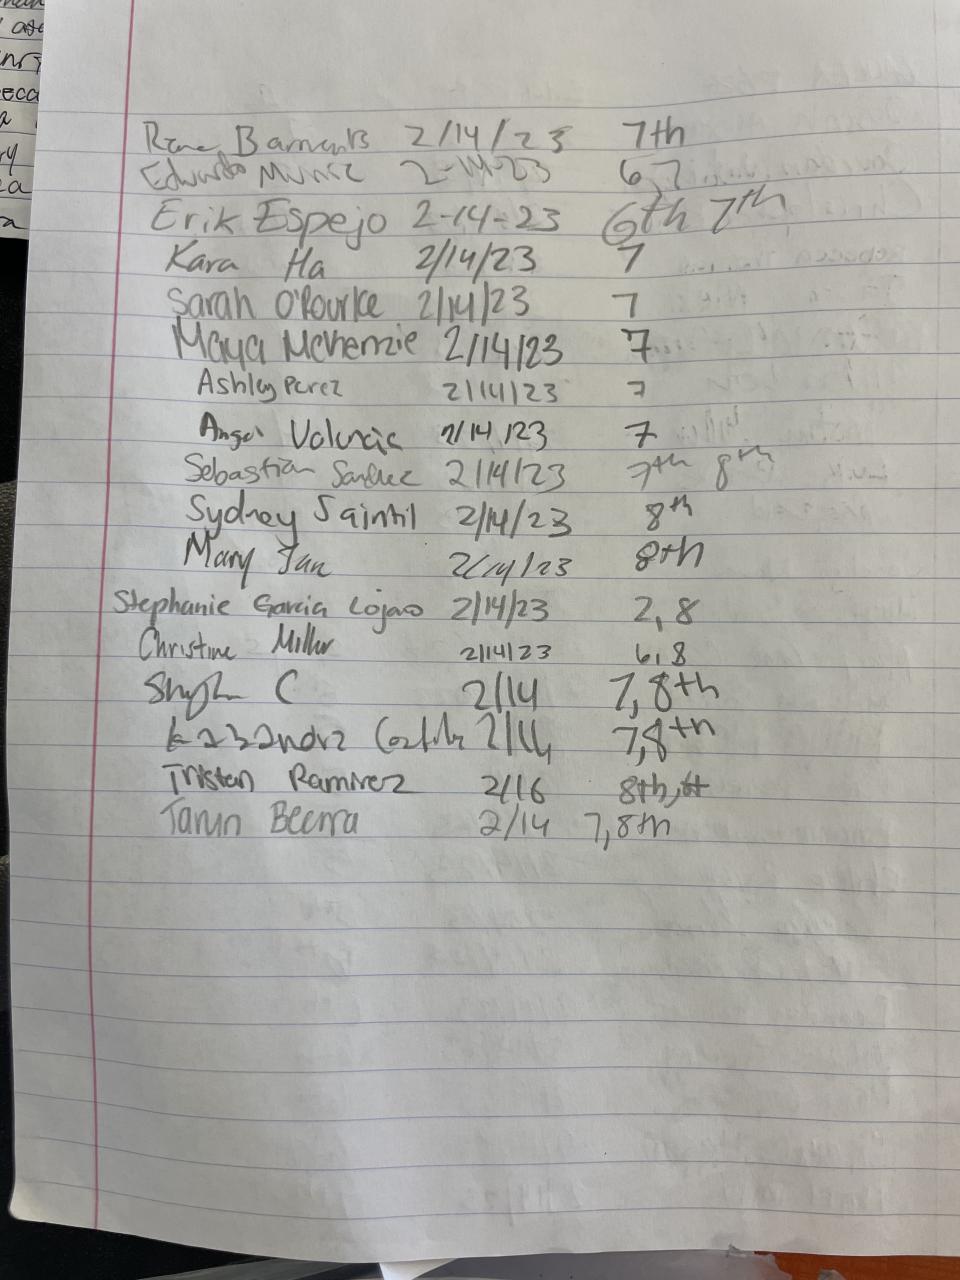 2/14/23 7th
Eduardo Muniz 2-14-23 6,7
Erik Espejo 2-14-23 6th 7th
Kara Ha 2/14/23 7
Sarah O'Rourke 2/14/23 7
Maya McKenzie 2/14/23 7
Ashley Perez 2/14/23 7
Angel Valencia 2/14/23 7
Sebastian Sanchez 2/14/23 7th 8th
Sydney Saintil 2/14/23 8th
Mary 2/14/23 8th
Stephanie Garcia Lojano 2/14/23 2,8
Christine Miller 2/14/23 6,8
C 2/14 7,8th
2/14 7,8th
Tristan Ramirez 2/16 8th,
Tarun Beerra 2/14 7,8th